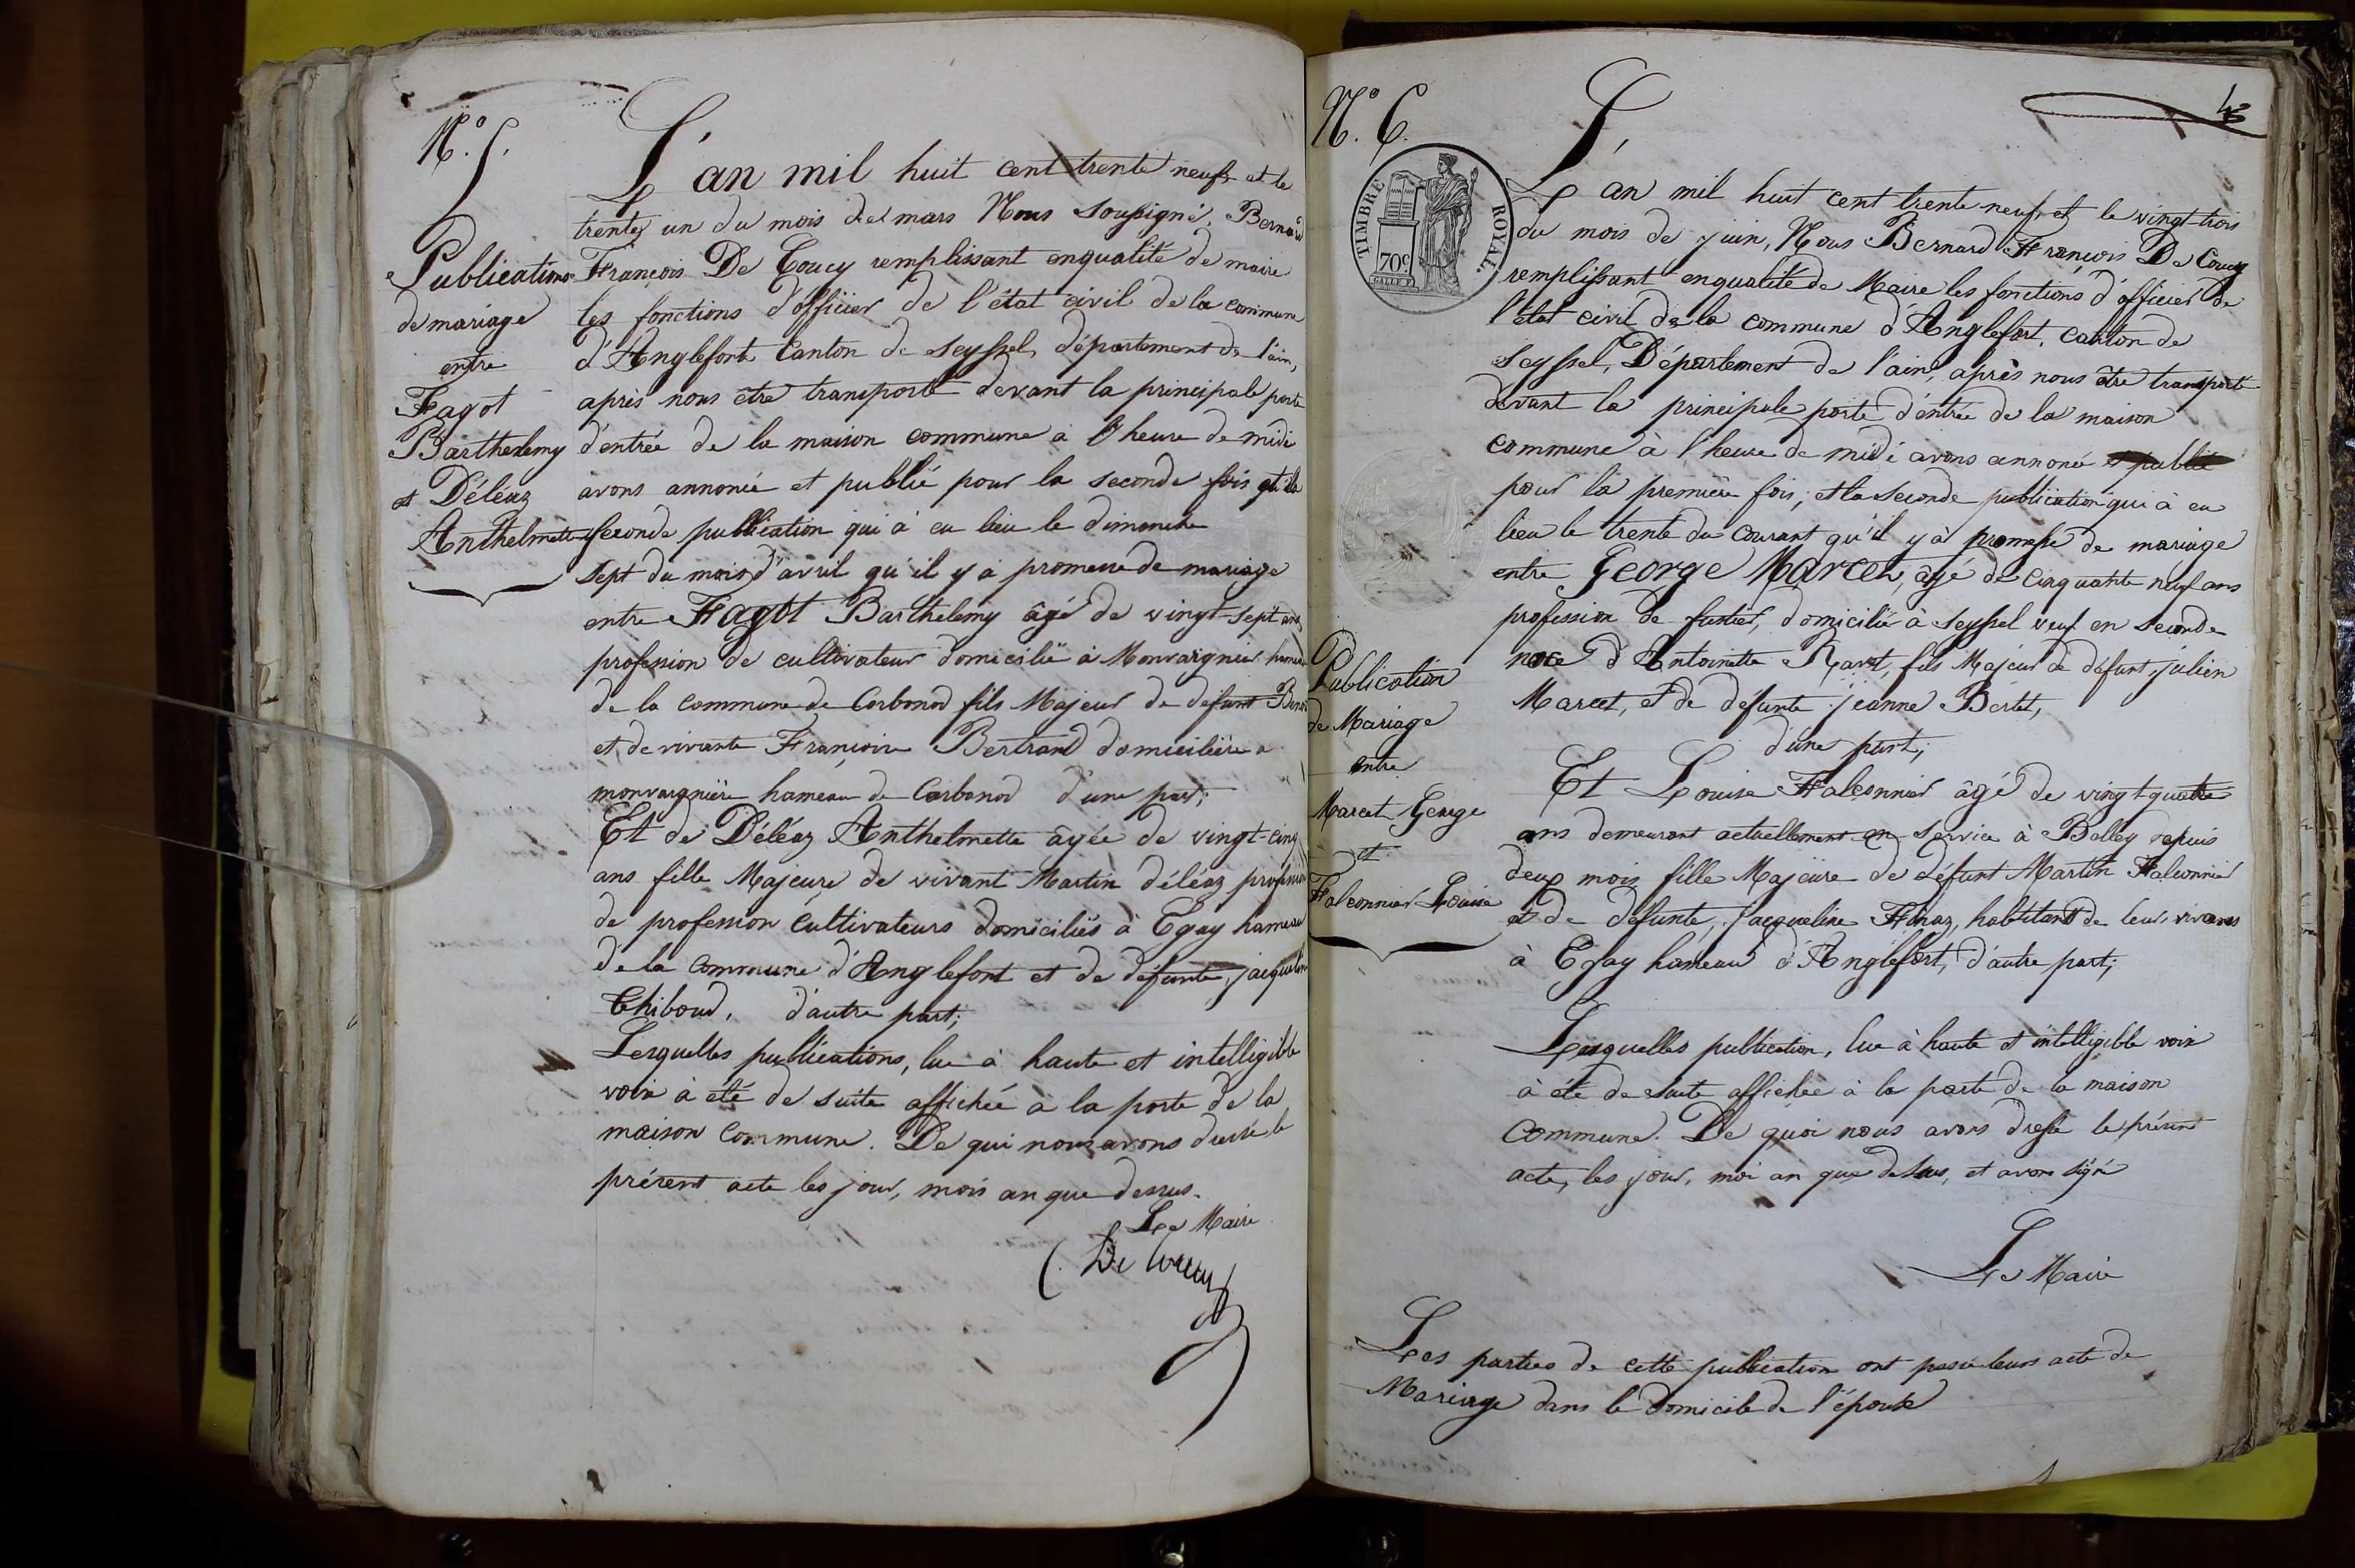 N.° 5.
Publications
de mariage
entre
Fagot
Barthelemy
et Déléaz
Anthelmette
L'an mil huit cent trente neuf et le
trente un du mois de mars Nous Soussigné, Bernard
François De Coucy remplissant enqualité de maire
les fonctions d'officier de l'état civil de la commune
d'Anglefort Canton de Seyssel, département de l'ain,
après nous être transporté devant la principale porte
d'entrée de la maison commune à l'heure de midi
avons annoncé et publié pour la seconde fois
seconde publication qui à eu lieu le dimanche
sept du mois d'avril qu'il y à promesse de mariage
entre Fagot Barthelemy âgé de vingt-sept ans
profession de cultivateur domicilié à Monvargnier
de la commune de Corbonod fils Majeur de defunt
et de vivante Françoise Bertrand domiciliée a
monvargniere hameau de Corbonod d'une part;
Et de Déléaz Anthelmette âgée de vingt-cinq
ans fille Majeure de vivant Martin déléaz profession
de profession Cultivateurs domiciliés à Egay hameau
de la Commune d'Anglefort et de défunte, jacqueline
Thiboud, d'autre part;
Lesquelles publications, lue à haute et intelligible
voix à été de suite affichée à la porte de la
maison Commune. De qui nous avons dressé le
présent acte les jour, mois an que dessus.
Le Maire
De Coucy
N.° 6.
TIMBRE ROYAL.
70c
Publication
de Mariage
entre
Marcet George
et
Falconnier Louise
L'an mil huit cent trente neuf, et le vingt-trois
du mois de juin, Nous Bernard François De Coucy
remplissant enqualité de Maire les fonctions d'officier de
l'état civil de la commune d'Anglefort, canton de
Seyssel, Département de l'ain, après nous être transporté
devant la principale porte d'entrée de la maison
commune à l'heure de midi avons annoncé et publié
pour la première fois; et la seconde publication qui à eu
lieu le trente du Courant qu'il y à promesse de mariage
entre George Marcet, âgé de cinquante neuf ans
profession de fustier, domicilié à Seyssel veuf en seconde
noce d'Antoinette Ravet, fils Majeur de défunt julien
Marcet, et de défunte jeanne Bertet,
d'une part;
Et Louise Falconnier âgé de vingt quatre
ans demeurant actuellement en service à Belley depuis
deux mois fille Majeure de défunt Martin Falconnier
et de défunte, Jacqueline Finaz, habitant de leur vivans
à Egay hameau d'Anglefort, d'autre part;
Lesquelles publication, lue à haute et intelligible voix
à été de suite affichée à la porte de la maison
commune. De quoi nous avons dressé le présent
acte, les jour, moi an que dessus, et avons signé
Le Maire
Les parties de cette publication ont passé leurs acte de
Mariage dans le Domicile de l'épouse